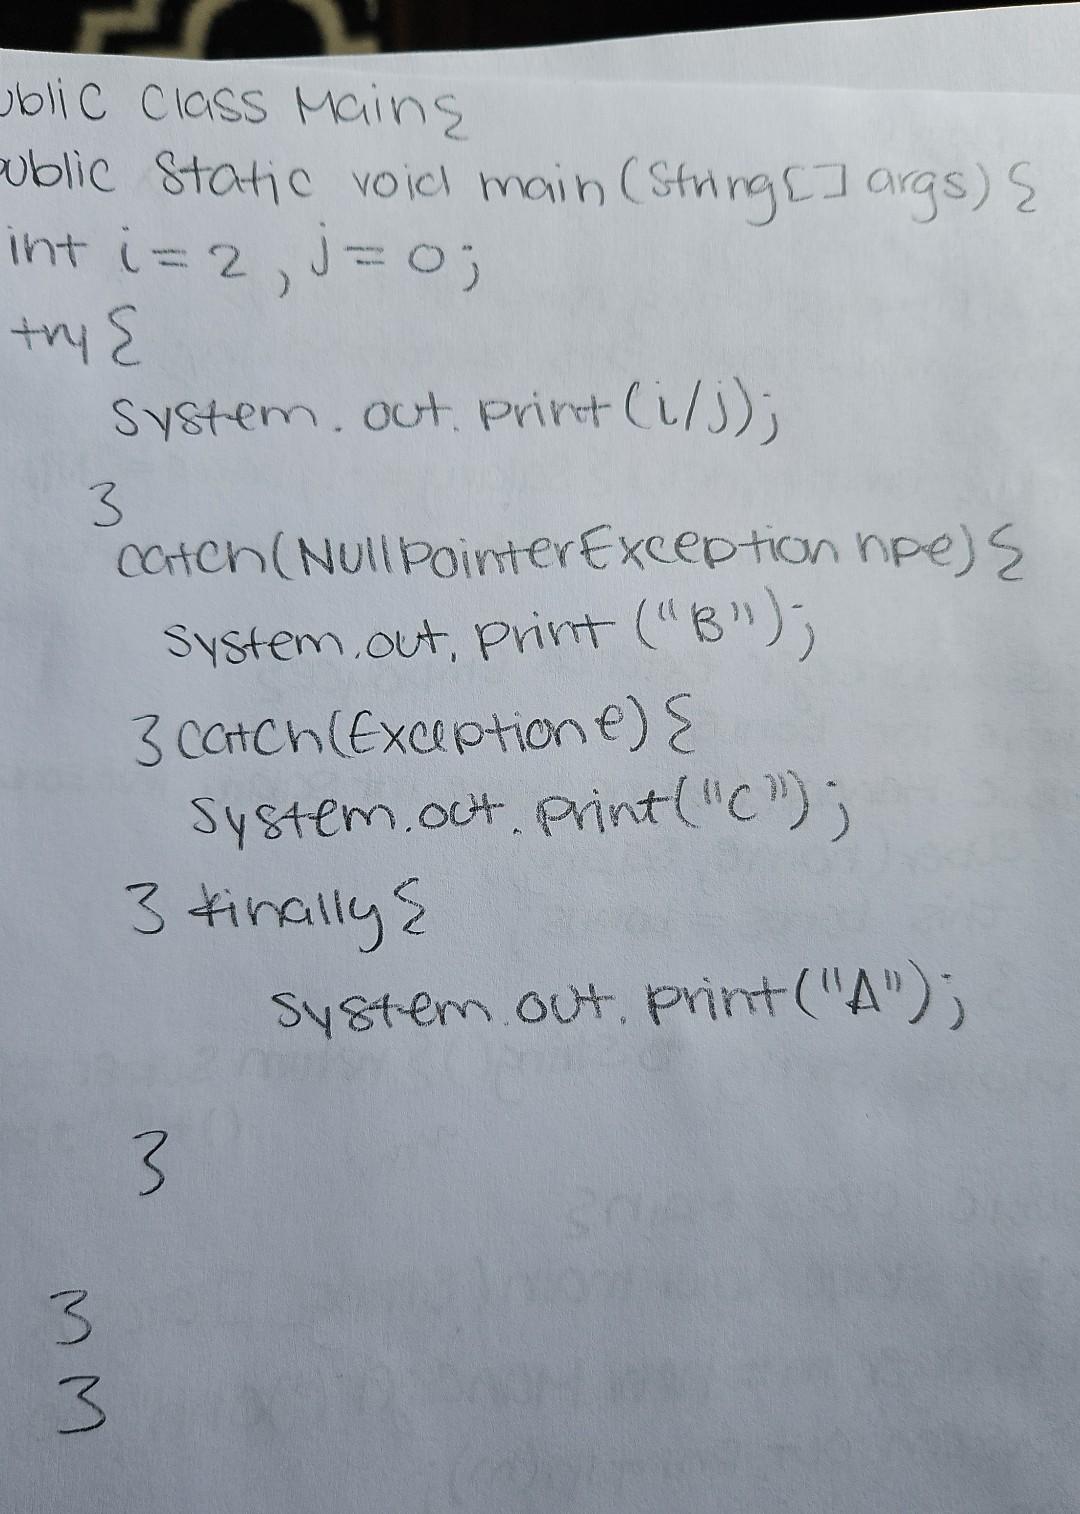 ublic class Main{
public static void main(String[] args) {
int i=2, j=0;
try {
system.out.print(i/j);
}
catch(NullpointerException npe) {
system.out.print ("B");
} catch(Exception e) {
system.out.print("C");
} finally {
system.out.print("A");
}
}
}